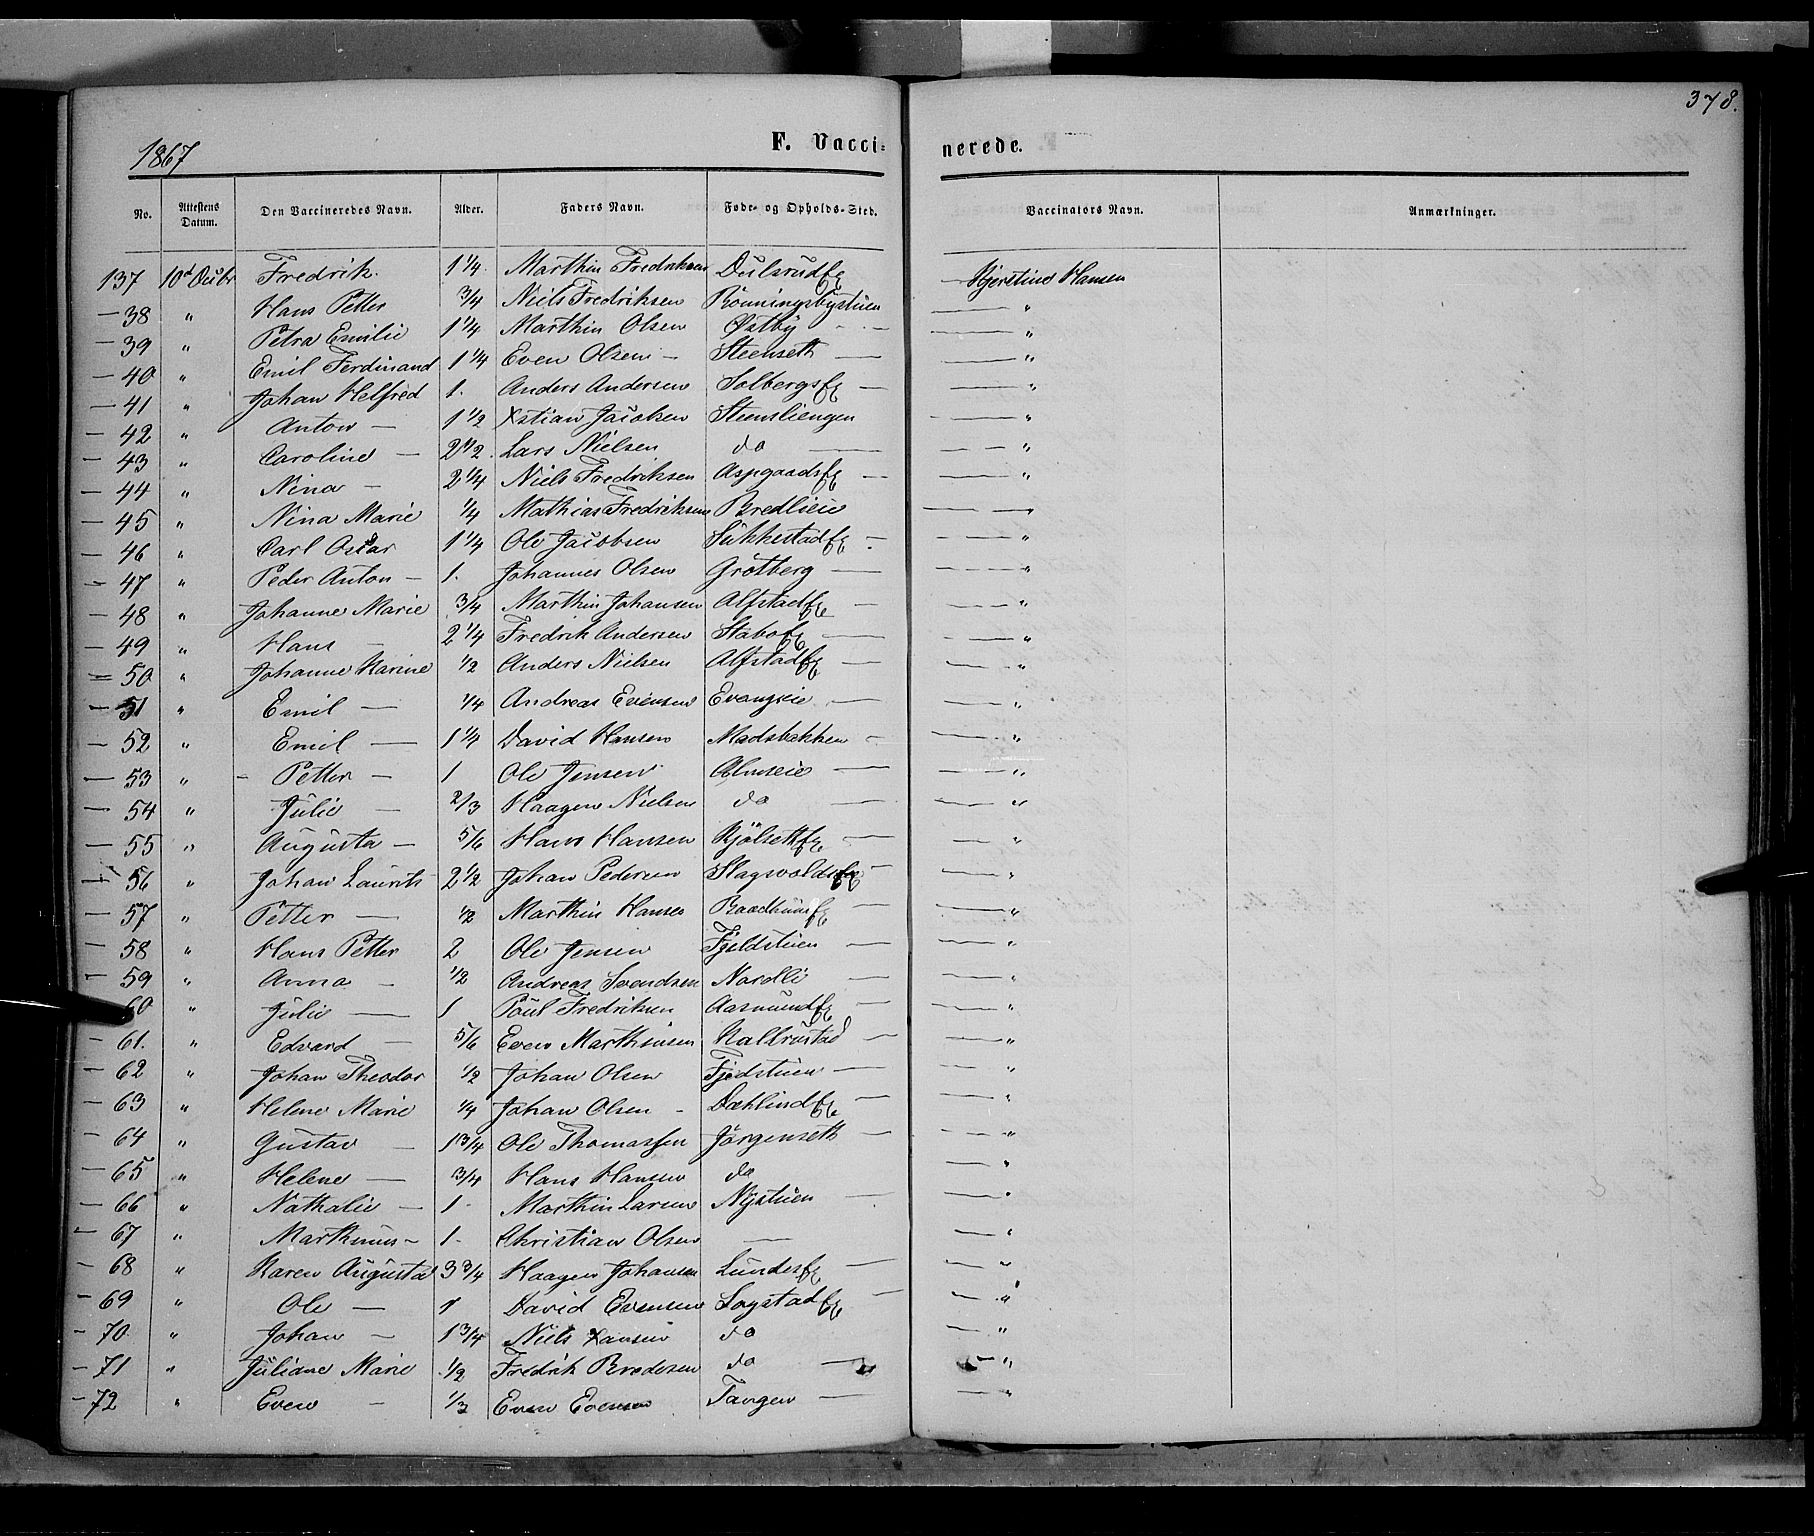 378.
1867
F. Vacci-
nerede.
No. Attestens Datum. Den Vaccineredes Navn. Alder. Faders Navn. Føde- og Opholds-Sted. Vaccinators Navn. Anmærkninger.
137 10d Octbr Fredrik 1 1/4 Marthin Fredriksen Dulsrudfg Kjerstine Hansen
— 38 " Hans Petter 3/4 Niels Fredriksen Rønningsbystuen — "
— 39 " Petra Emilie 1 1/4 Marthin Olsen Østby — "
— 40 " Emil Ferdinand 1 1/4 Even Olsen — Steenseth — "
— 41 " Johan Helfred 1. Anders Andersen Solbergsfg — "
— 42 " Anton — 1 1/2 Xstian Jacobsen Steensliengen — "
— 43 " Caroline — 2 1/2. Lars Nielsen do — "
— 44 " Nina — 2 1/4 Niels Fredriksen Aspgaardsfg — "
— 45 " Nina Marie 1/4 Mathias Fredriksen Bredlieie — "
— 46 " Carl Oscar 1 1/4 Ole Jacobsen Sukkestadfg — "
— 47 " Peder Anton — 1. Johannes Olsen Grøtberg — "
— 48 " Johanne Marie 3/4 Marthin Johansen Alfstadfg — "
— 49 " Hans — 2 1/4 Fredrik Andersen Stabofg — "
— 50 " Johanne Karine 1/2 Anders Nielsen Alfstadfg — "
— 51 " Emil — 1/4 Andreas Evensen Evangseie — "
— 52 " Emil — 1 1/4 David Hansen Madsbakken — "
— 53 " Petter — 1 Ole Jensen Almseie — "
— 54 " Julie — 2/3 Haagen Nielsen do — "
— 55 " Augusta — 5/6 Hans Hansen Kjölsethfg — "
— 56 " Johan Laurits 2 1/2 Johan Pedersen Slagsvoldsfg — "
— 57 " Petter — 1/2 Marthin Hansen — "
— 58 " Hans Petter 2 Ole Jensen Fjeldstuen — "
— 59 " Anna — 1/2 Andreas Svendsen Nordli — "
60 " Julie — 1 Poul Fredriksen Aasmundfg — "
— 61. " Edvard — 5/6 Even Marthinsen Kaltrustad — "
— 62 " Johan Theodor 1/2 Johan Olsen Fjedstuen — "
— 63 " Helene Marie 1/4 Johan Olsen — Dæhlindfg — "
— 64 " Gustav — 1 3/4 Ole Thomassen Jörgenseth — "
— 65 " Helene — 3/4 Hans Hansen do — "
— 66 " Nathalie — 1 Marthin Larsen Nystuen — "
— 67 " Marthinus — 1. Christian Olsen — — "
— 68 " Karen Augusta 3 3/4 Haagen Johansen Lundesfg — "
— 69 " Ole — 1 David Evensen Sogstadfg — "
— 70. " Johan — 1 3/4 Niels Hansen do — "
— 71 " Juliane Marie 1/2 Fredrik Bredesen do — "
— 72 " Even — 1/3 Even Evensen Tangen — "